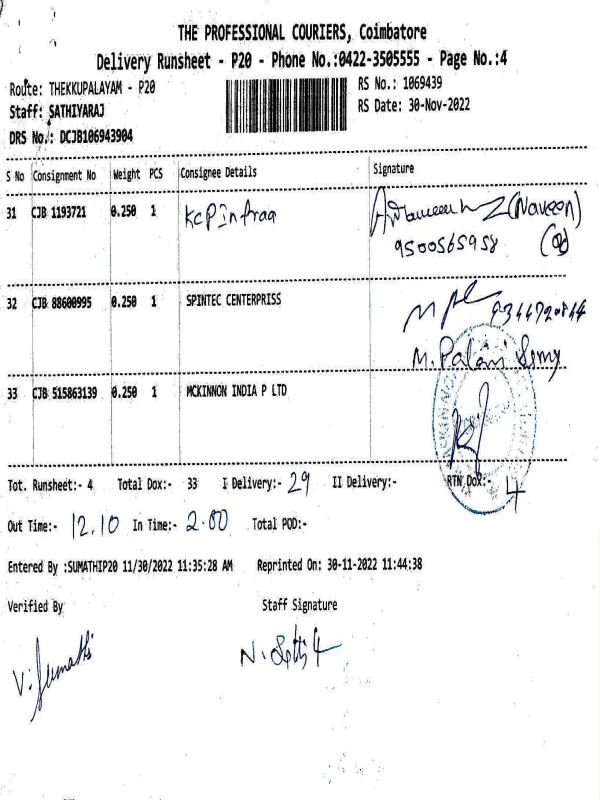 THE PROFESSIONAL COURIERS, Coimbatore
Delivery Runsheet - P20 - Phone No.:0422-3505555 - Page No.:4
Route: THEKKUPALAYAM - P20
RS No.: 1069439
Staff: SATHIYARAJ
RS Date: 30-Nov-2022
DRS No.: DCJB106943904
S No Consignment No Weight PCS Consignee Details Signature
31 CJB 1193721 0.250 1 KCP Infraa (Naveen)
9500565958
32 CJB 88600995 0.250 1 SPINTEC CENTERPRISS
M. Palani Samy
33 CJB 515863139 0.250 1 MCKINNON INDIA P LTD
Tot. Runsheet:- 4 Total Dox:- 33 I Delivery:- 29 II Delivery:- RTN Dox:- 4
Out Time:- 12.10 In Time:- 2.00 Total POD:-
Entered By :SUMATHIP20 11/30/2022 11:35:28 AM Reprinted On: 30-11-2022 11:44:38
Verified By Staff Signature
V. Sumathi